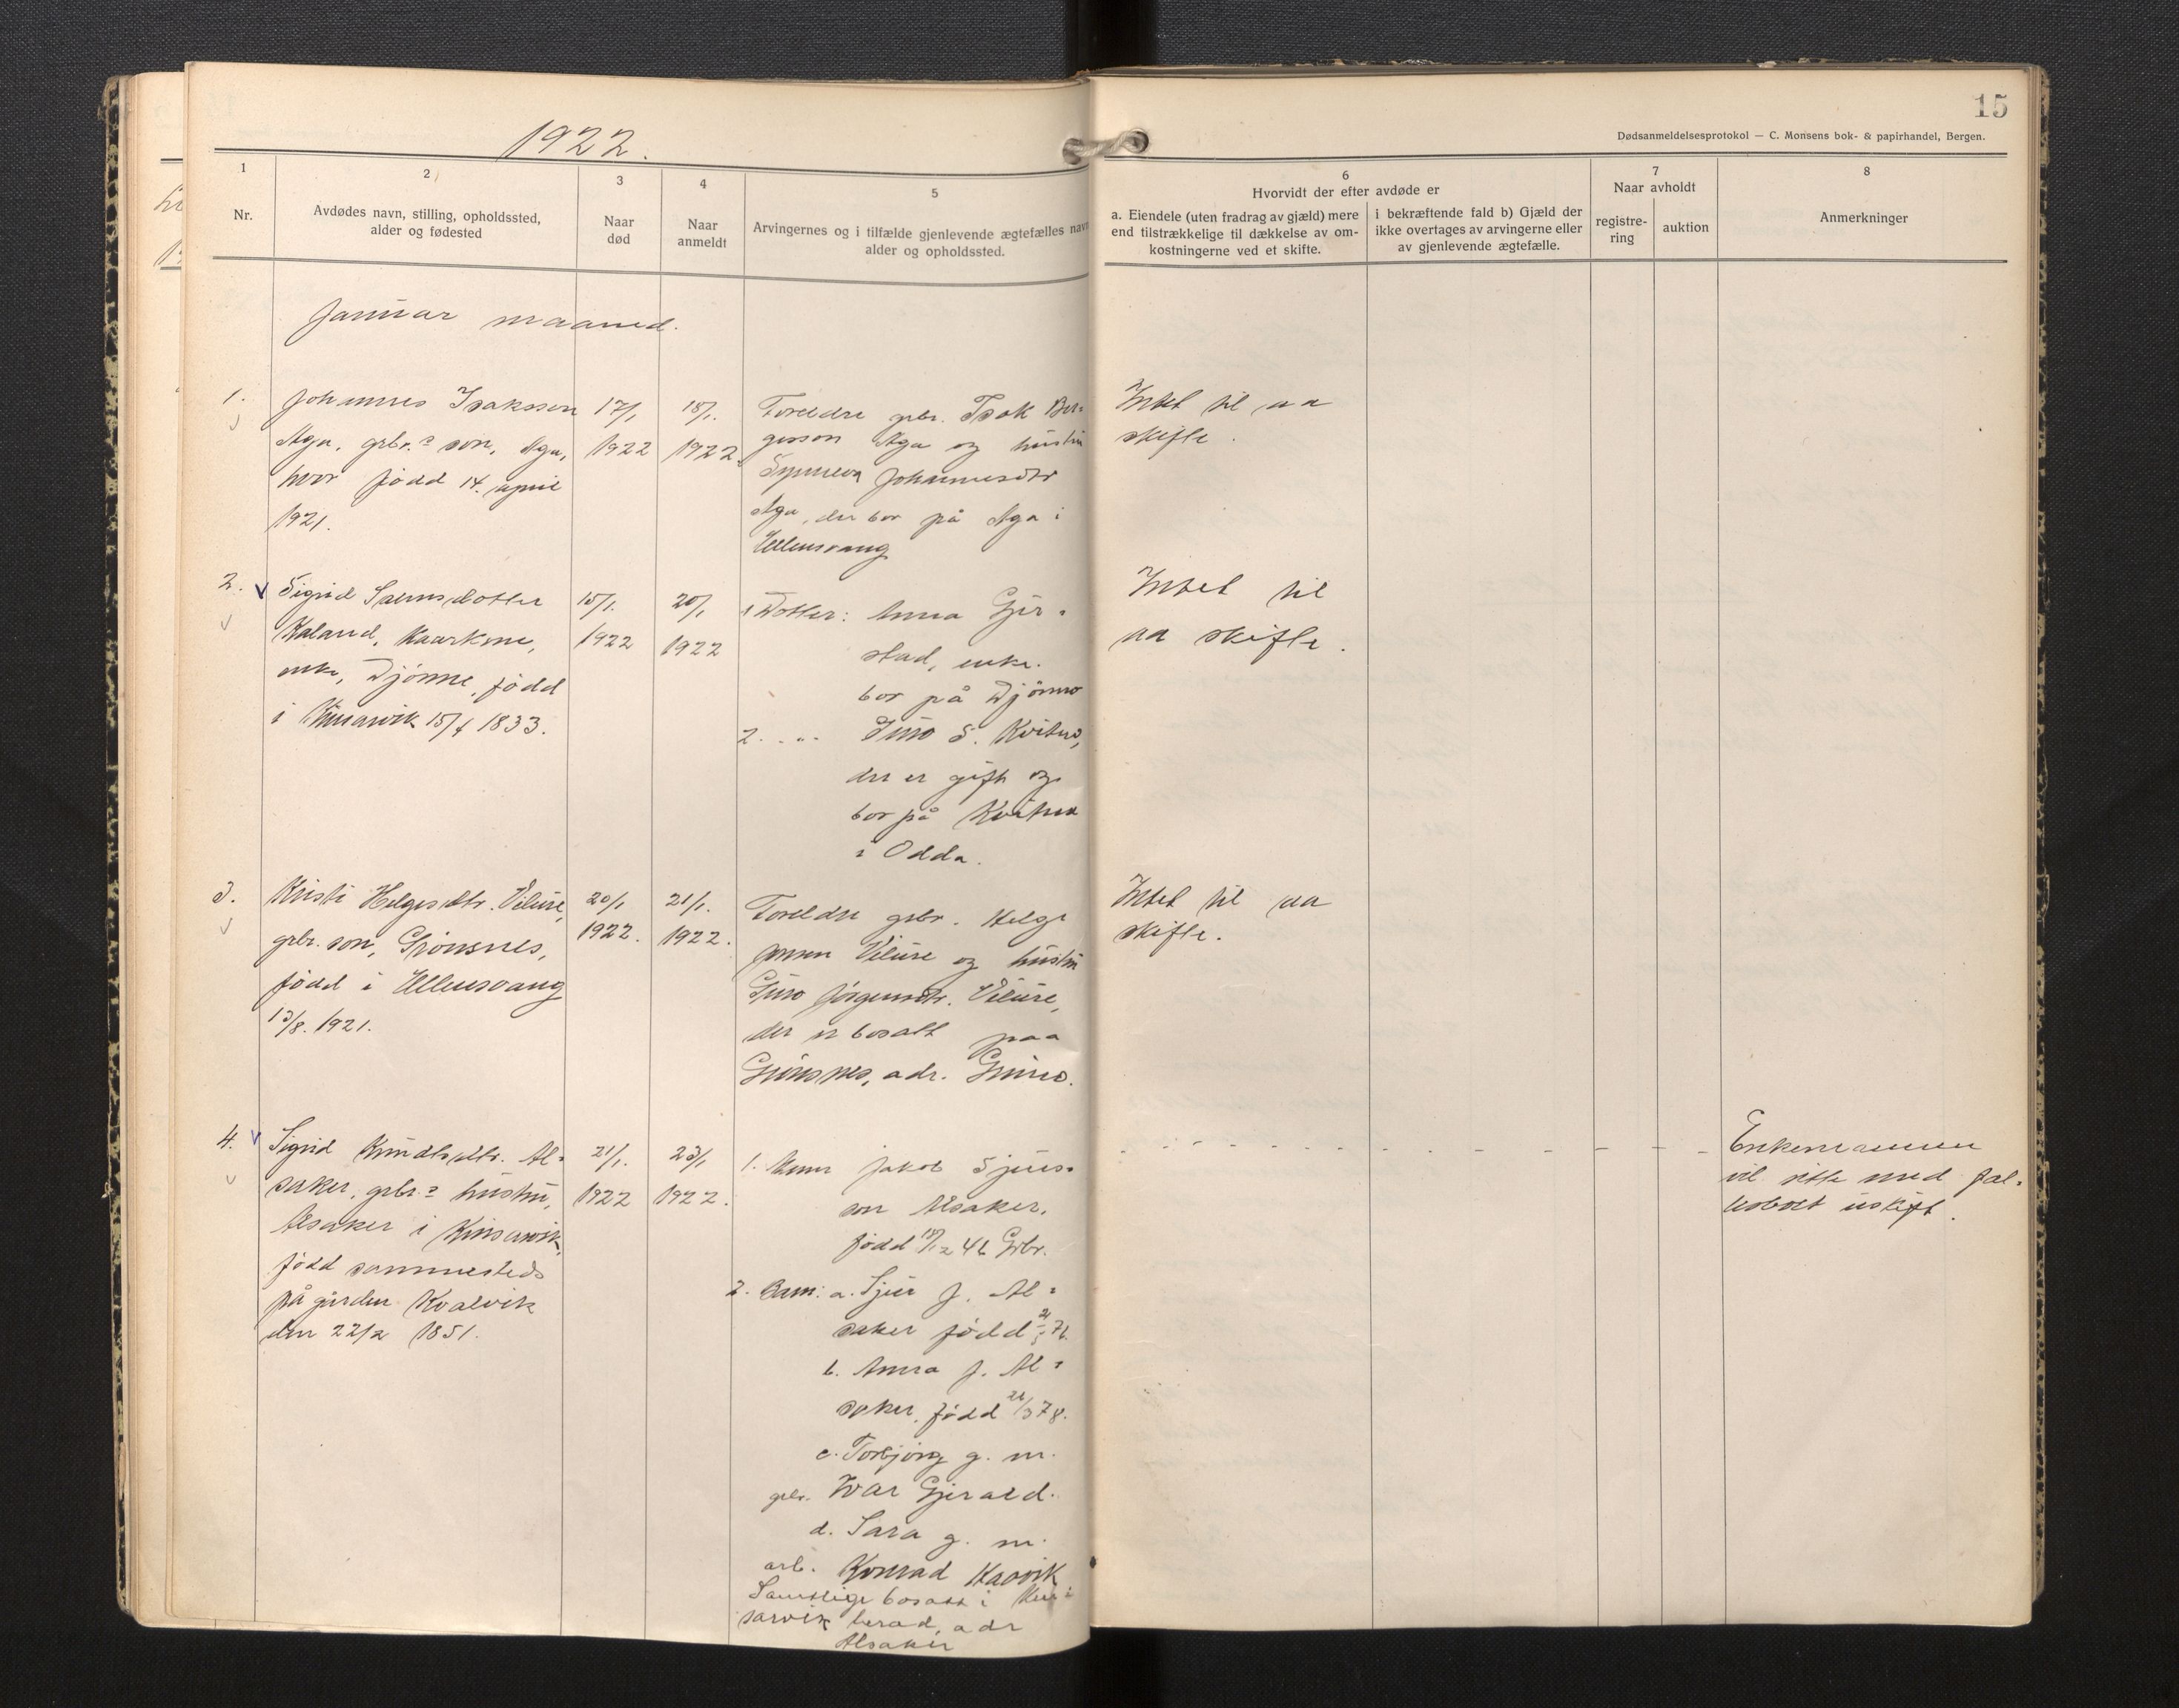 15
Dødsanmeldelsesprotokol — C. Monsens bok- & papirhandel, Bergen.
1922.
1
Nr.
2
Avdødes navn, stilling, opholdssted,
alder og fødested
3
Naar
død
4
Naar
anmeldt
5
Arvingernes og i tilfælde gjenlevende ægtefælles navn
alder og opholdssted.
6
Hvorvidt der efter avdøde er
a. Eiendele (uten fradrag av gjæld) mere
end tilstrækkelige til dækkelse av om-
kostningerne ved et skifte.
i bekræftende fald b) Gjæld der
ikke overtages av arvingerne eller
av gjenlevende ægtefælle.
7
Naar avholdt
registre-
ring
auktion
8
Anmerkninger
Januar maaned.
1.
Johannes Isaksson
Aga, grbr.s son, Aga,
hvor født 14. april
1921.
17/1
1922
18/1.
1922.
Foreldre grbr. Isak Ber-
gesson Aga og hustru
Synneva Johannesdtr
Aga, der bor på Aga i
Ullensvang
Intet til aa
skifte.
2.
Sigrid Samsdotter
Kaland, kaarkone,
enke, Djønne, fødd
i Kinsarvik 15/4 1833.
15/1.
1922
20/1
1922
1 Dotter: Anna Gjer-
stad, enke.
bor på Djønno
2. - " - Guro S. Kvitno,
der er gift og
bor på Kvitno
i Odda.
Intet til
aa skifte.
3.
Kristi Helgesdtr. Vilure,
grbr. son, Grønsnes,
fødd i Ullensvang
13/8. 1921.
20/1
1922.
21/1.
1922.
Foreldre grbr. Helge
Vilure og hustru
Guro Jørgensdtr. Vilure,
der er bosatt paa
adr. Grimo.
Intet til aa
skifte.
4.
Sigrid Knudtsdtr. Al-
saker, grbr.s hustru,
Alsaker i Kinsarvik,
fødd sammesteds
på gården Kvalvik
den 22/2 1851.
21/1.
1922
23/1
1922.
1. Mann Jakob Sjurs-
son Alsaker,
fødd 18/12 46 Grbr.
2. Barn: a. Sjur J. Al-
saker fødd 76.
b. Anna J. Al-
saker, fødd 26/3 78.
c. Torbjørg g. m.
grbr. Ivar Gjerald.
d. Sara g. m.
arb. Konrad Haavik
Samtlige bosatt i Kin-
sarvik herad, adr
Alsaker
Enkemannen
vil sitte med fæl-
lesboet uskift.